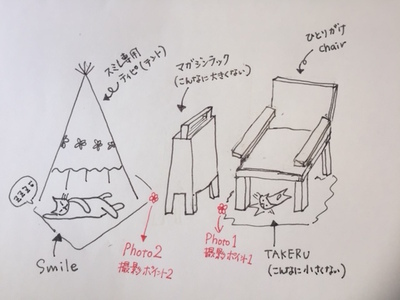 スミレ専用
ティピ(テント)
マガジンラック
(こんなに大きくない)
ひとりがけ
chair
zzzz
Smile
Photo2
撮影ポイント2
Photo1
撮影ポイント1
TAKERU
(こんなに小さくない)